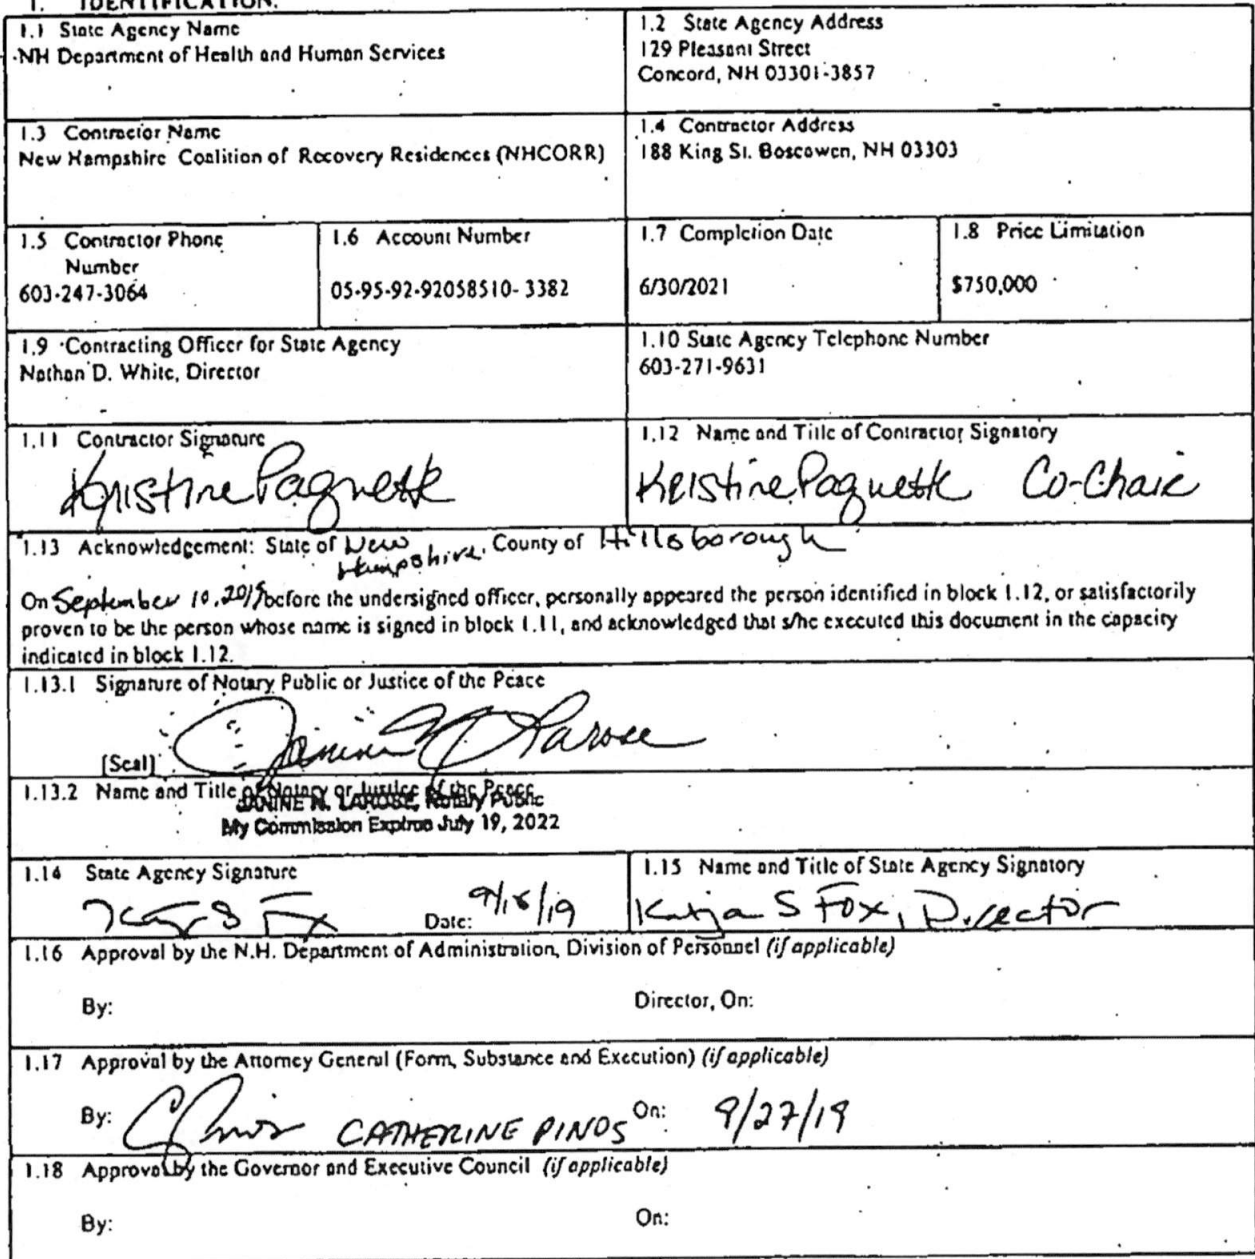 1. IDENTIFICATION.
1.1 State Agency Name
NH Department of Health and Human Services
1.2 State Agency Address
129 Pleasant Street
Concord, NH 03301-3857
1.3 Contractor Name
New Hampshire Coalition of Recovery Residences (NHCORR)
1.4 Contractor Address
188 King St. Boscowen, NH 03303
1.5 Contractor Phone
Number
603-247-3064
1.6 Account Number
05-95-92-92058510- 3382
1.7 Completion Date
6/30/2021
1.8 Price Limitation
$750,000
1.9 Contracting Officer for State Agency
Nathan D. White, Director
1.10 State Agency Telephone Number
603-271-9631
1.11 Contractor Signature
Kristine Paquette
1.12 Name and Title of Contractor Signatory
Kristine Paquette Co-Chair
1.13 Acknowledgement: State of New Hampshire, County of Hillsborough
On September 10, 2019 before the undersigned officer, personally appeared the person identified in block 1.12, or satisfactorily
proven to be the person whose name is signed in block 1.11, and acknowledged that s/he executed this document in the capacity
indicated in block 1.12.
1.13.1 Signature of Notary Public or Justice of the Peace
Janine N Larose
[Seal]
1.13.2 Name and Title of Notary or Justice of the Peace
JANINE N. LAROSE, Notary Public
My Commission Expires July 19, 2022
1.14 State Agency Signature
Date:
1.15 Name and Title of State Agency Signatory
Katja S Fox, Director
1.16 Approval by the N.H. Department of Administration, Division of Personnel (if applicable)
By: Director, On:
1.17 Approval by the Attorney General (Form, Substance and Execution) (if applicable)
By: CATHERINE PINOS On: 9/27/19
1.18 Approval by the Governor and Executive Council (if applicable)
By: On: